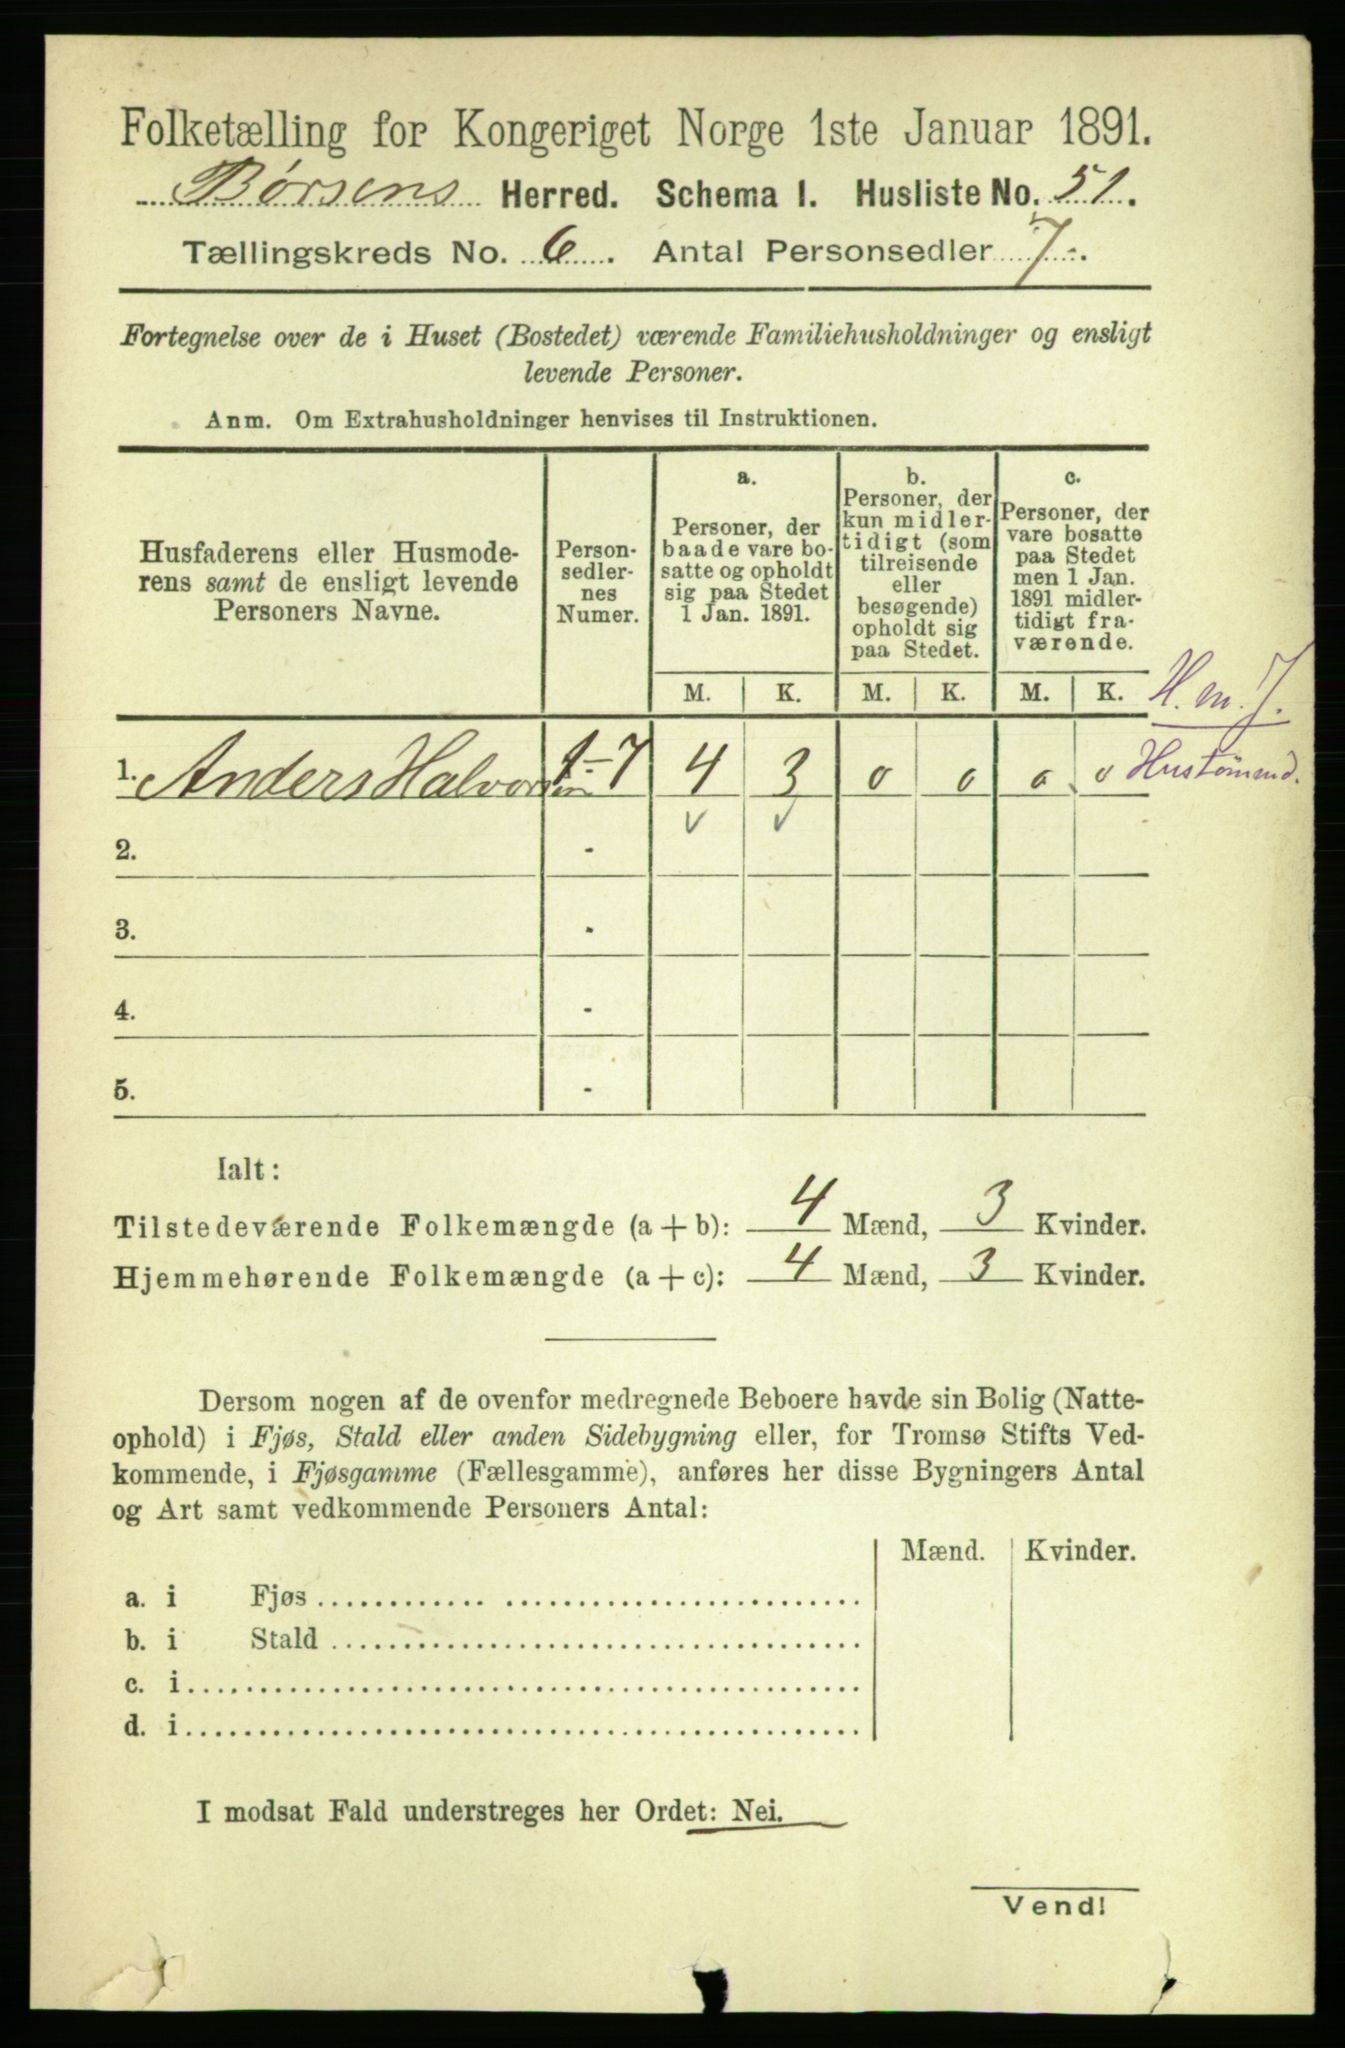 Folketælling for Kongeriget Norge 1ste Januar 1891.
Børsens Herred. Schema I. Husliste No. 51.
Tællingskreds No. 6. Antal Personsedler 7.
Fortegnelse over de i Huset (Bostedet) værende Familiehusholdninger og ensligt
levende Personer.
Anm. Om Extrahusholdninger henvises til Instruktionen.
Husfaderens eller Husmode-
rens samt de ensligt levende
Personers Navne.
Person-
sedler-
nes
Numer.
a.
Personer, der
baade vare bo-
satte og opholdt
sig paa Stedet
1 Jan. 1891.
b.
Personer, der
kun midler-
tidigt (som
tilreisende
eller
besøgende)
opholdt sig
paa Stedet.
c.
Personer, der
vare bosatte
paa Stedet
men 1 Jan.
1891 midler-
tidigt fra-
værende.
M. K. M. K. M. K.
H. m. J.
1. Anders Halvorsen 1-7 4 3 0 0 0 0 Hustømmd.
✓ ✓
2. -
3. -
4. -
5. -
Ialt:
Tilstedeværende Folkemængde (a + b): 4 Mænd, 3 Kvinder.
Hjemmehørende Folkemængde (a + c): 4 Mænd, 3 Kvinder.
Dersom nogen af de ovenfor medregnede Beboere havde sin Bolig (Natte-
ophold) i Fjøs, Stald eller anden Sidebygning eller, for Tromsø Stifts Ved-
kommende, i Fjøsgamme (Fællesgamme), anføres her disse Bygningers Antal
og Art samt vedkommende Personers Antal:
Mænd. Kvinder.
a. i Fjøs
b. i Stald
c. i
d. i
I modsat Fald understreges her Ordet: Nei.
Vend!